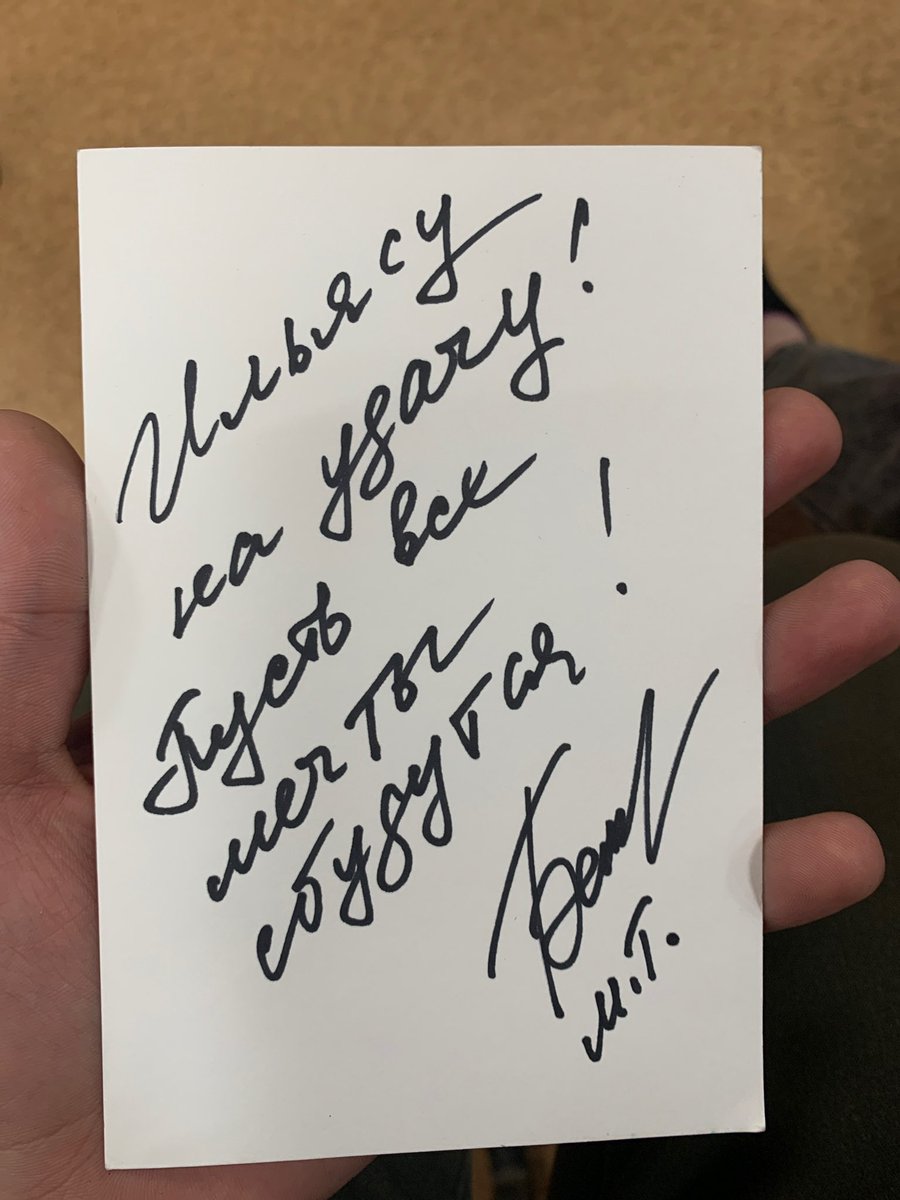 Ильясу
на удачу!
Пусть все
мечты
сбудутся!
М.Т.